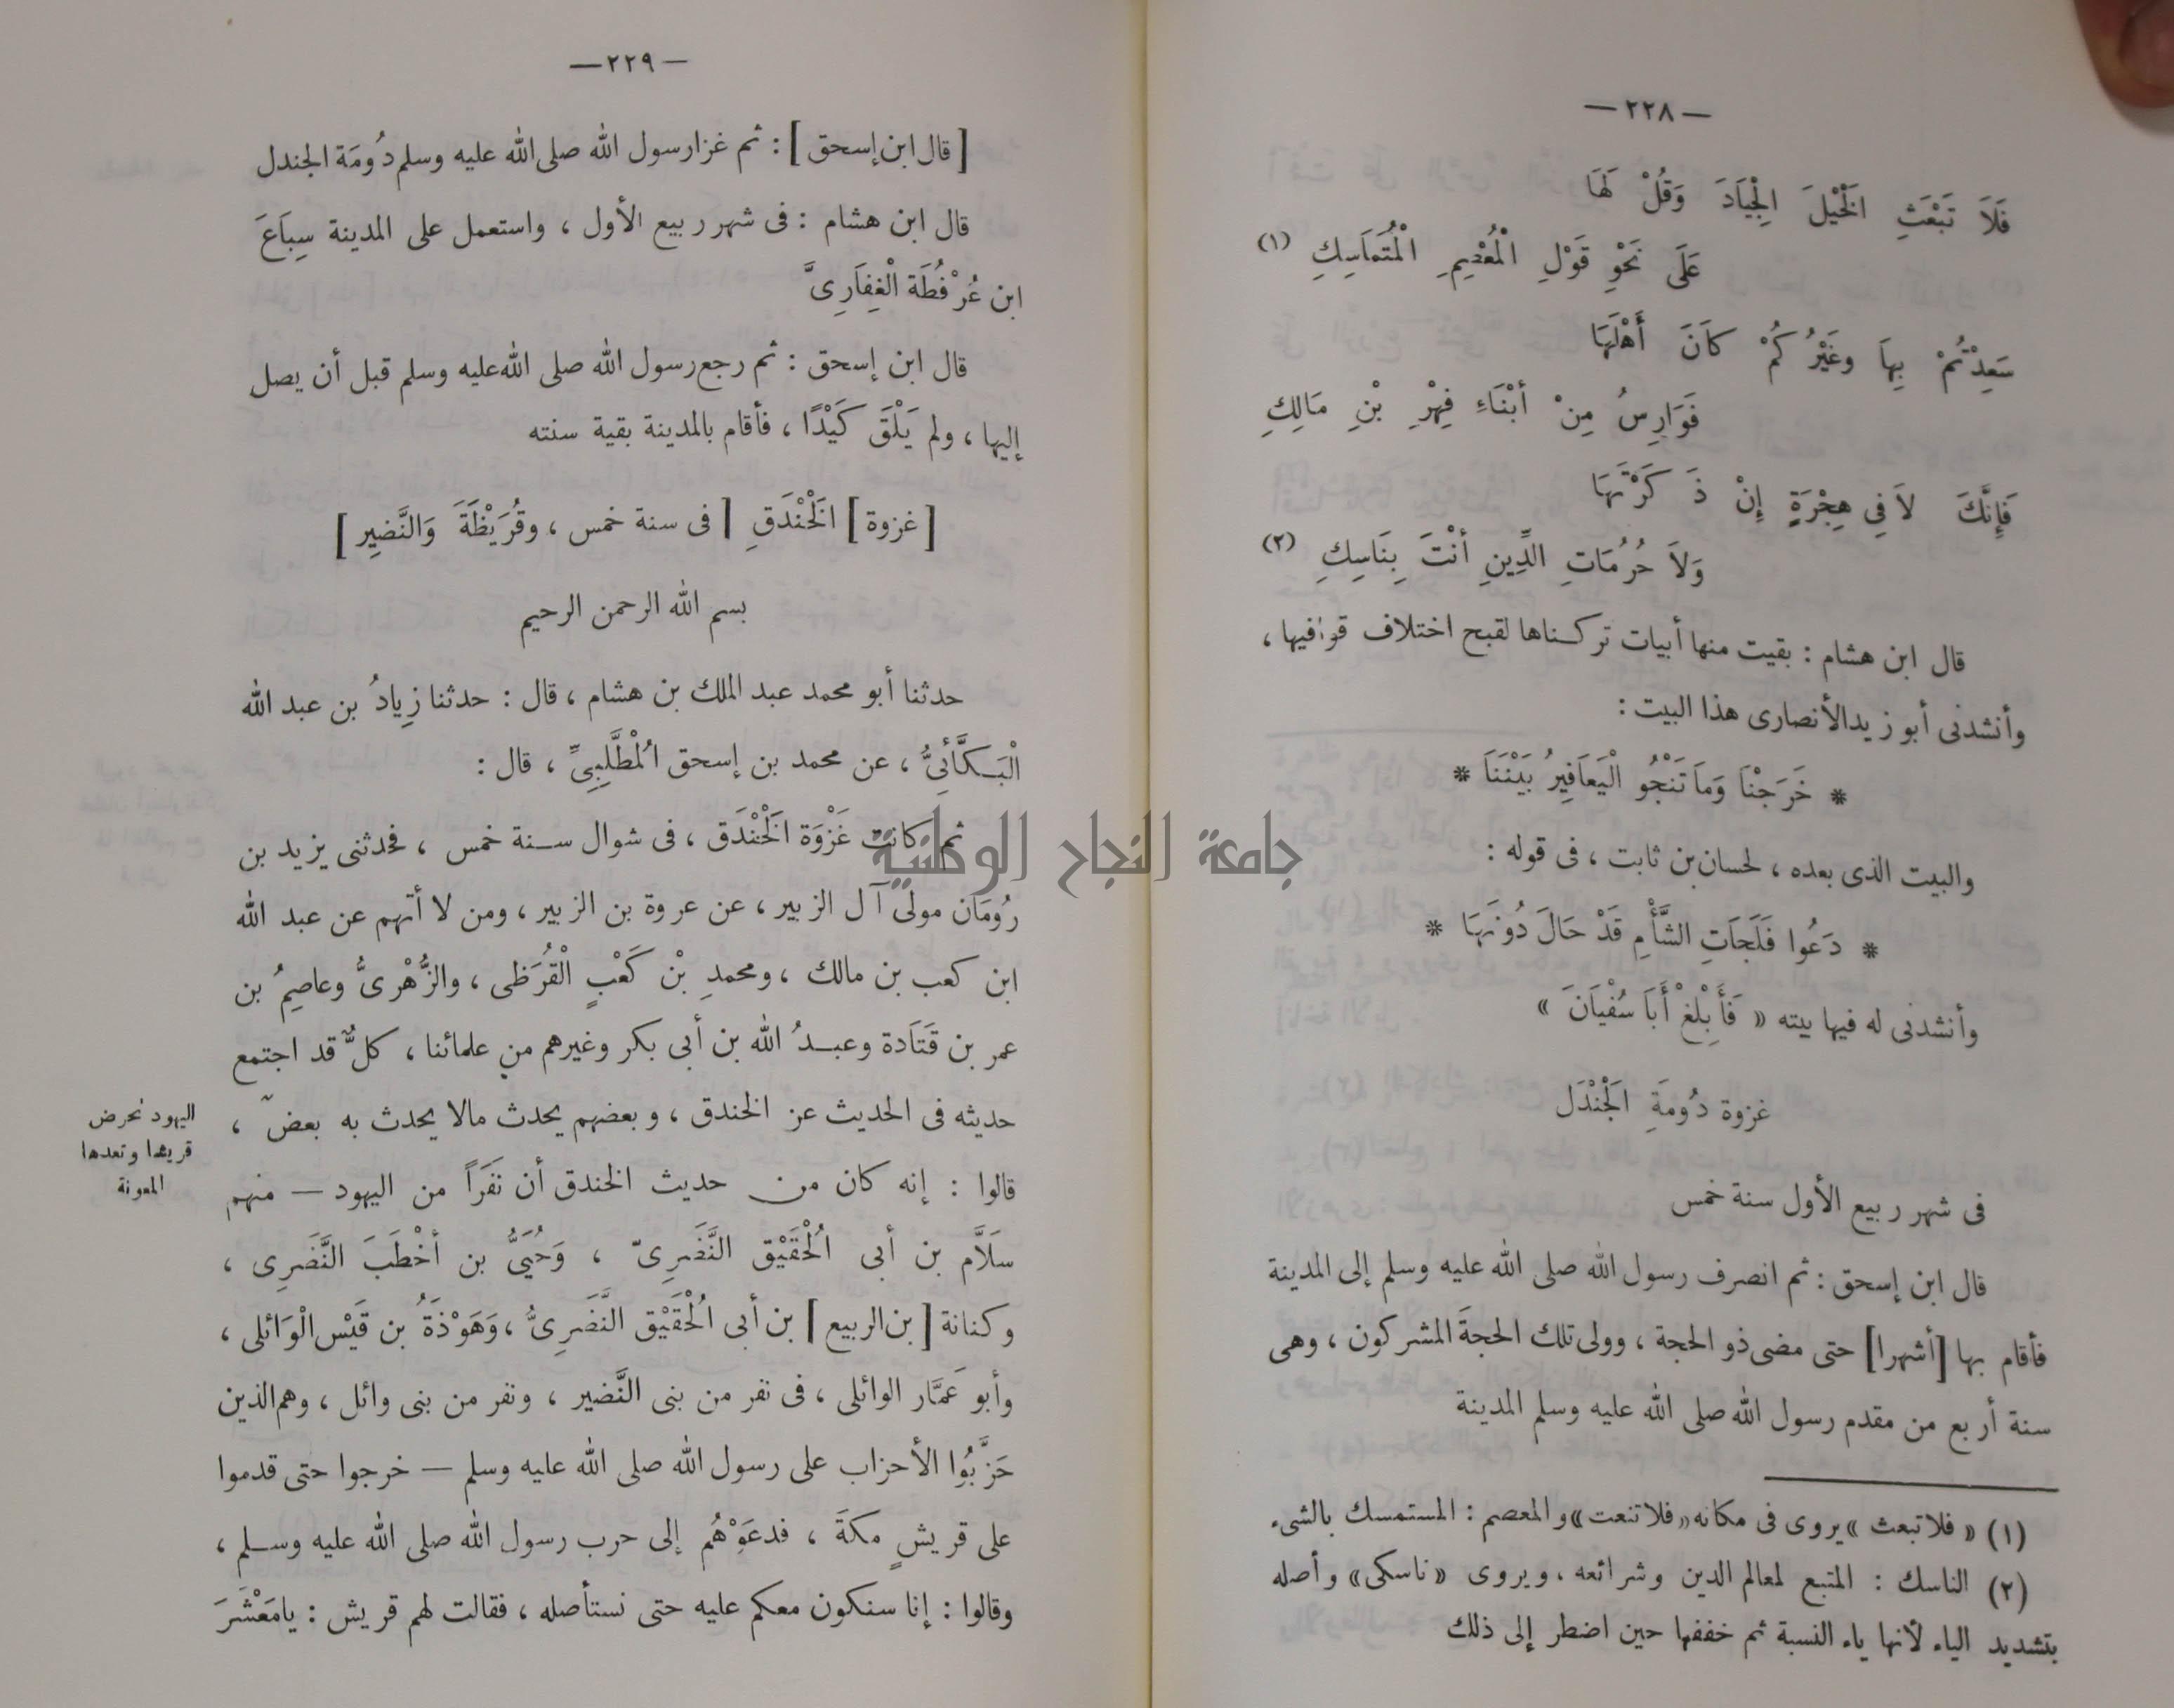 — ٢٢٨ —
فَلاَ تَبْعَثِ الْخَيْلَ الْجِيَادَ وَقُلْ لَهَا
عَلَى نَحْوِ قَوْلِ الْمُعْصِمِ الْمُتَمَاسِكِ (١)
سَعِدْتُمْ بِهَا وغَيْرُكُمْ كَانَ أَهْلَهَا
فَوَارِسُ مِنْ أَبْنَاءِ فِهْرِ بْنِ مَالِكِ
فَإِنَّكَ لاَ فِي هِجْرَةٍ إِنْ ذَكَرْتَهَا
وَلاَ حُرُمَاتِ الدِّينِ أَنْتَ بِنَاسِكِ (٢)
قال ابن هشام : بقيت منها أبيات تركناها لقبح اختلاف قوافيها ،
وأنشدنى أبو زيد الأنصارى هذا البيت :
* خَرَجْنَا وَمَا تَنْجُو الْيَعَافِيرُ بَيْنَنَا *
والبيت الذى بعده ، لحسان بن ثابت ، فى قوله :
* دَعُوا فَلَجَاتِ الشَّأْمِ قَدْ حَالَ دُونَهَا *
وأنشدنى له فيها بيته « فَأَبْلِغْ أَبَا سُفْيَانَ »
غزوة دُومَةِ الْجَنْدَل
فى شهر ربيع الأول سنة خمس
قال ابن إسحق : ثم انصرف رسول الله صلى الله عليه وسلم إلى المدينة
فأقام بها [أشهرا] حتى مضى ذو الحجة ، وولى تلك الحجةَ المشركون ، وهى
سنة أربع من مقدم رسول الله صلى الله عليه وسلم المدينة
(١) « فلا تبعث » يروى فى مكانه « فلا تنعت » والمعصم : المستمسك بالشىء
(٢) الناسك : المتبع لمعالم الدين وشرائعه ، ويروى « ناسكى » وأصله
بتشديد الياء لأنها ياء النسبة ثم خففها حين اضطر إلى ذلك
— ٢٢٩ —
[ قال ابن إسحق ] : ثم غزا رسول الله صلى الله عليه وسلم دُومَة الجندل
قال ابن هشام : فى شهر ربيع الأول ، واستعمل على المدينة سِبَاعَ
ابن عُرْفُطَة الْغِفَارِىَّ
قال ابن إسحق : ثم رجع رسول الله صلى الله عليه وسلم قبل أن يصل
إليها ، ولم يَلْقَ كَيْدًا ، فأقام بالمدينة بقية سنته
[ غزوة ] الْخَنْدَقِ [ فى سنة خمس ، وقُرَيْظَةَ وَالنَّضِير ]
بسم الله الرحمن الرحيم
حدثنا أبو محمد عبد الملك بن هشام ، قال : حدثنا زِيادُ بن عبد الله
الْبَكَّائِيُّ ، عن محمد بن إسحق الْمُطَّلِبِيِّ ، قال :
ثم كانت غَزْوَة الْخَنْدَق ، فى شوال سنة خمس ، فحدثنى يزيد بن
رُومَان مولى آل الزبير ، عن عروة بن الزبير ، ومن لا أتهم عن عبد الله
ابن كعب بن مالك ، ومحمدِ بْن كَعْبٍ الْقُرَظى ، والزُّهْرىُّ وعاصِمُ بن
عمر بن قَتَادة وعبدُ الله بن أبى بكر وغيرهم من علمائنا ، كلٌّ قد اجتمع
حديثه فى الحديث عن الخندق ، وبعضهم يحدث مالا يحدث به بعض ،
قالوا : إنه كان من حديث الخندق أن نَفَرَاً من اليهود — منهم
سَلاَّم بن أبى الْحُقَيْق النَّضَرِىّ ، وَحُيَىُّ بن أخْطَبَ النَّضَرِى ،
وكنانة [ بن الربيع ] بن أبى الْحُقَيْق النَّضَرِىُّ ، وَهَوْذَةُ بن قَيْس الْوَائلى ،
وأبو عَمَّار الوائلى ، فى نفر من بنى النَّضير ، ونفر من بنى وائل ، وهم الذين
حَزَّبُوا الأحزاب على رسول الله صلى الله عليه وسلم — خرجوا حتى قدموا
على قريشٍ مكةَ ، فدعَوْهُم إلى حرب رسول الله صلى الله عليه وسلم ،
وقالوا : إنا سنكون معكم عليه حتى نستأصله ، فقالت لهم قريش : يا مَعْشَرَ
اليهود تحرض
قريشا وتعدها
المعونة
جامعة النجاح الوطنية